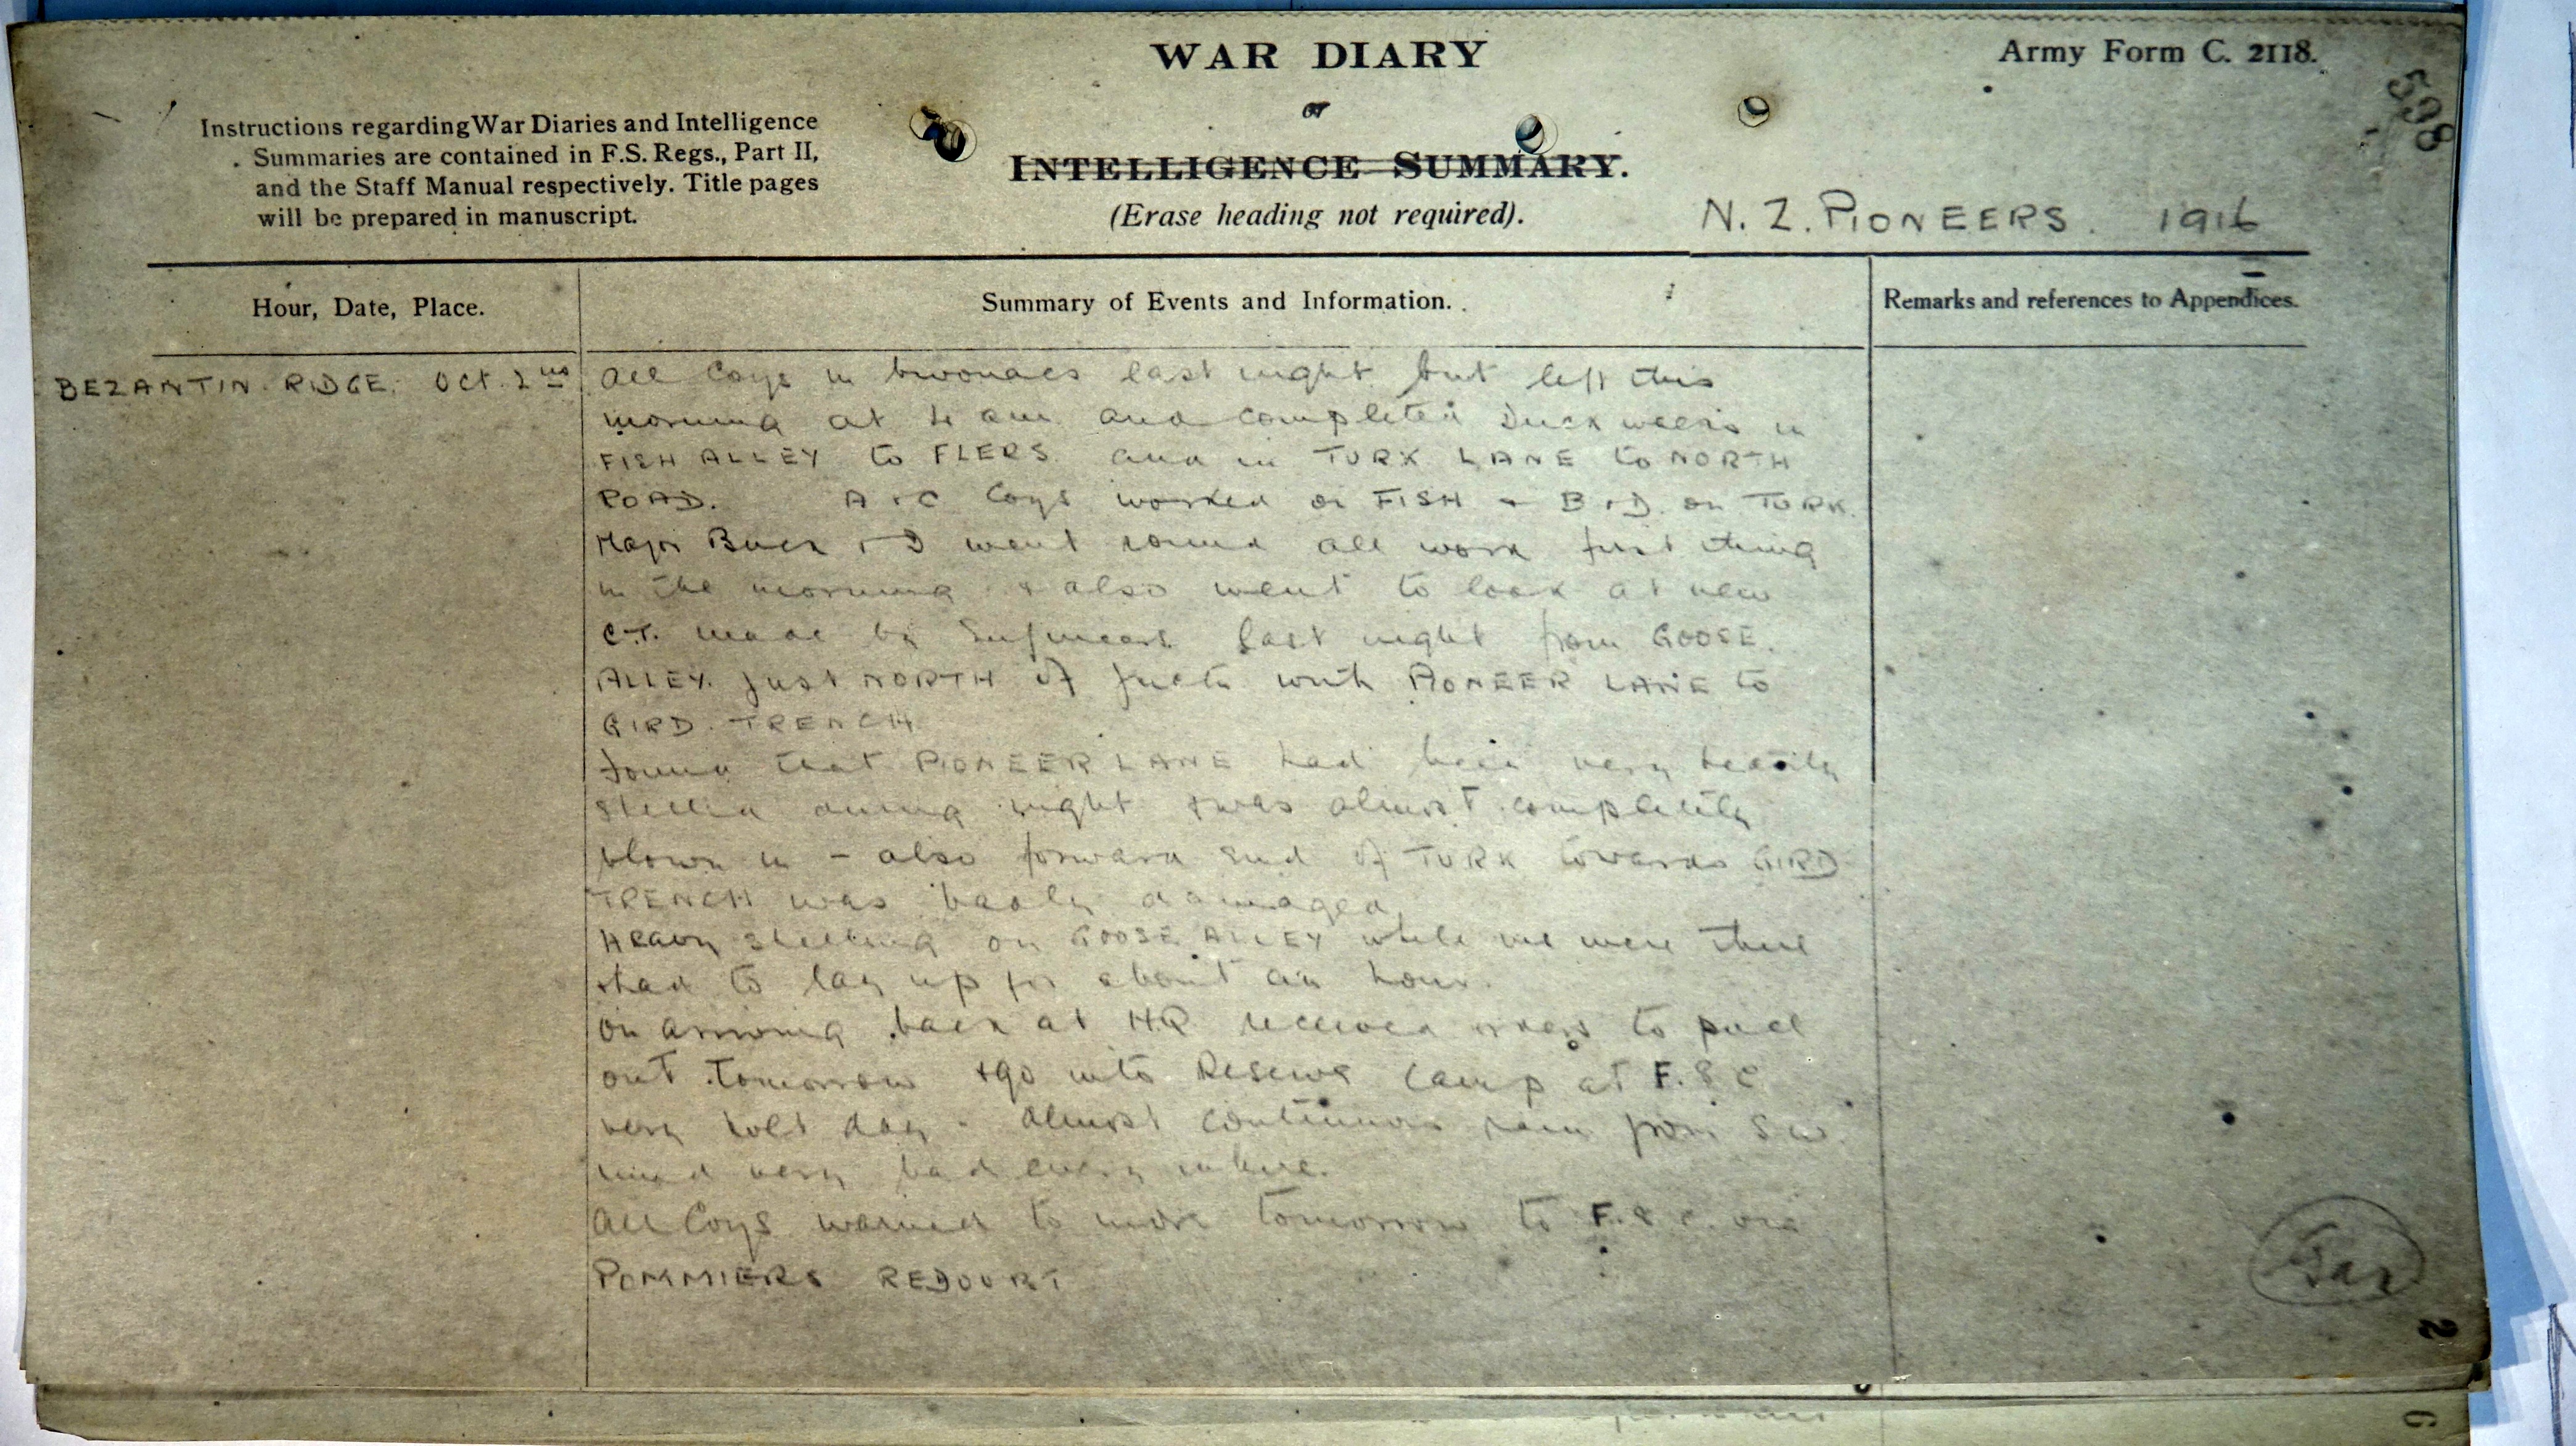 WAR DIARY
or
INTELLIGENCE SUMMARY.
(Erase heading not required).
Army Form C. 2118.
598
Instructions regarding War Diaries and Intelligence
Summaries are contained in F.S. Regs., Part II,
and the Staff Manual respectively. Title pages
will be prepared in manuscript.
N. Z. PIONEERS. 1916
Hour, Date, Place.
Summary of Events and Information.
Remarks and references to Appendices.
BEZANTIN RIDGE. Oct. 2nd
All Coys in bivouacs last night but left this
morning at 4 am and completed Duck walks in
FISH ALLEY to FLERS and in TURK LANE to NORTH
ROAD. A & C Coys worked on FISH & B & D on TURK.
Major Buck & I went round all work first thing
in the morning & also went to look at new
C.T. made by Engineers last night from GOOSE
ALLEY just NORTH of junctn with PIONEER LANE to
GIRD TRENCH
Found that PIONEER LANE had been very heavily
shelled during night & was almost completely
blown in - also forward end of TURK towards GIRD
TRENCH was badly damaged.
Heavy shelling on GOOSE ALLEY while we were there
& had to lay up for about an hour.
On arriving back at HQ received orders to pull
out tomorrow & go into Reserve Camp at F. 8 c
very cold day - almost continuous rain from SW.
mud very bad every where.
All Coys warned to move tomorrow to F. 8 c. via
POMMIERS REDOUBT
2
6